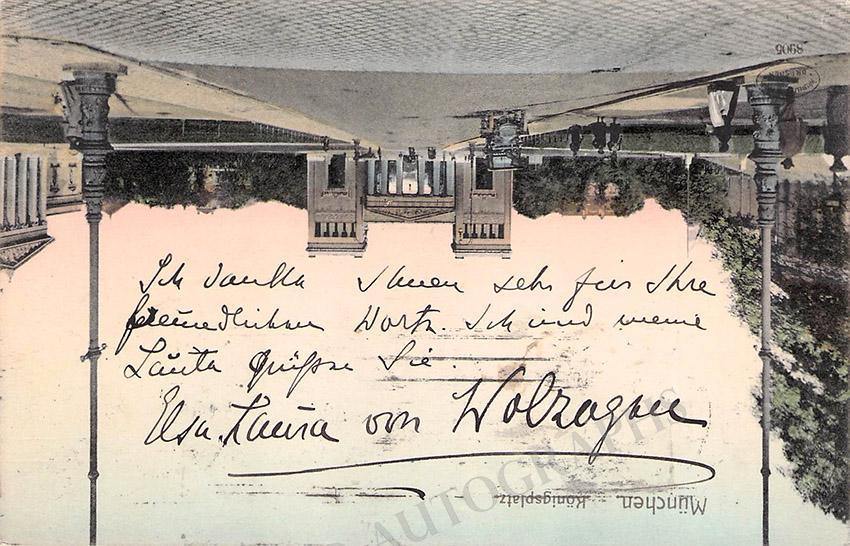 8905
Ich danke Ihnen sehr für Ihre
freundlichen Worte. Ich und meine
Laute grüßen Sie.
Elsa Laura von Wolzogen
München.
Königsplatz.
AUTOGRAPHS